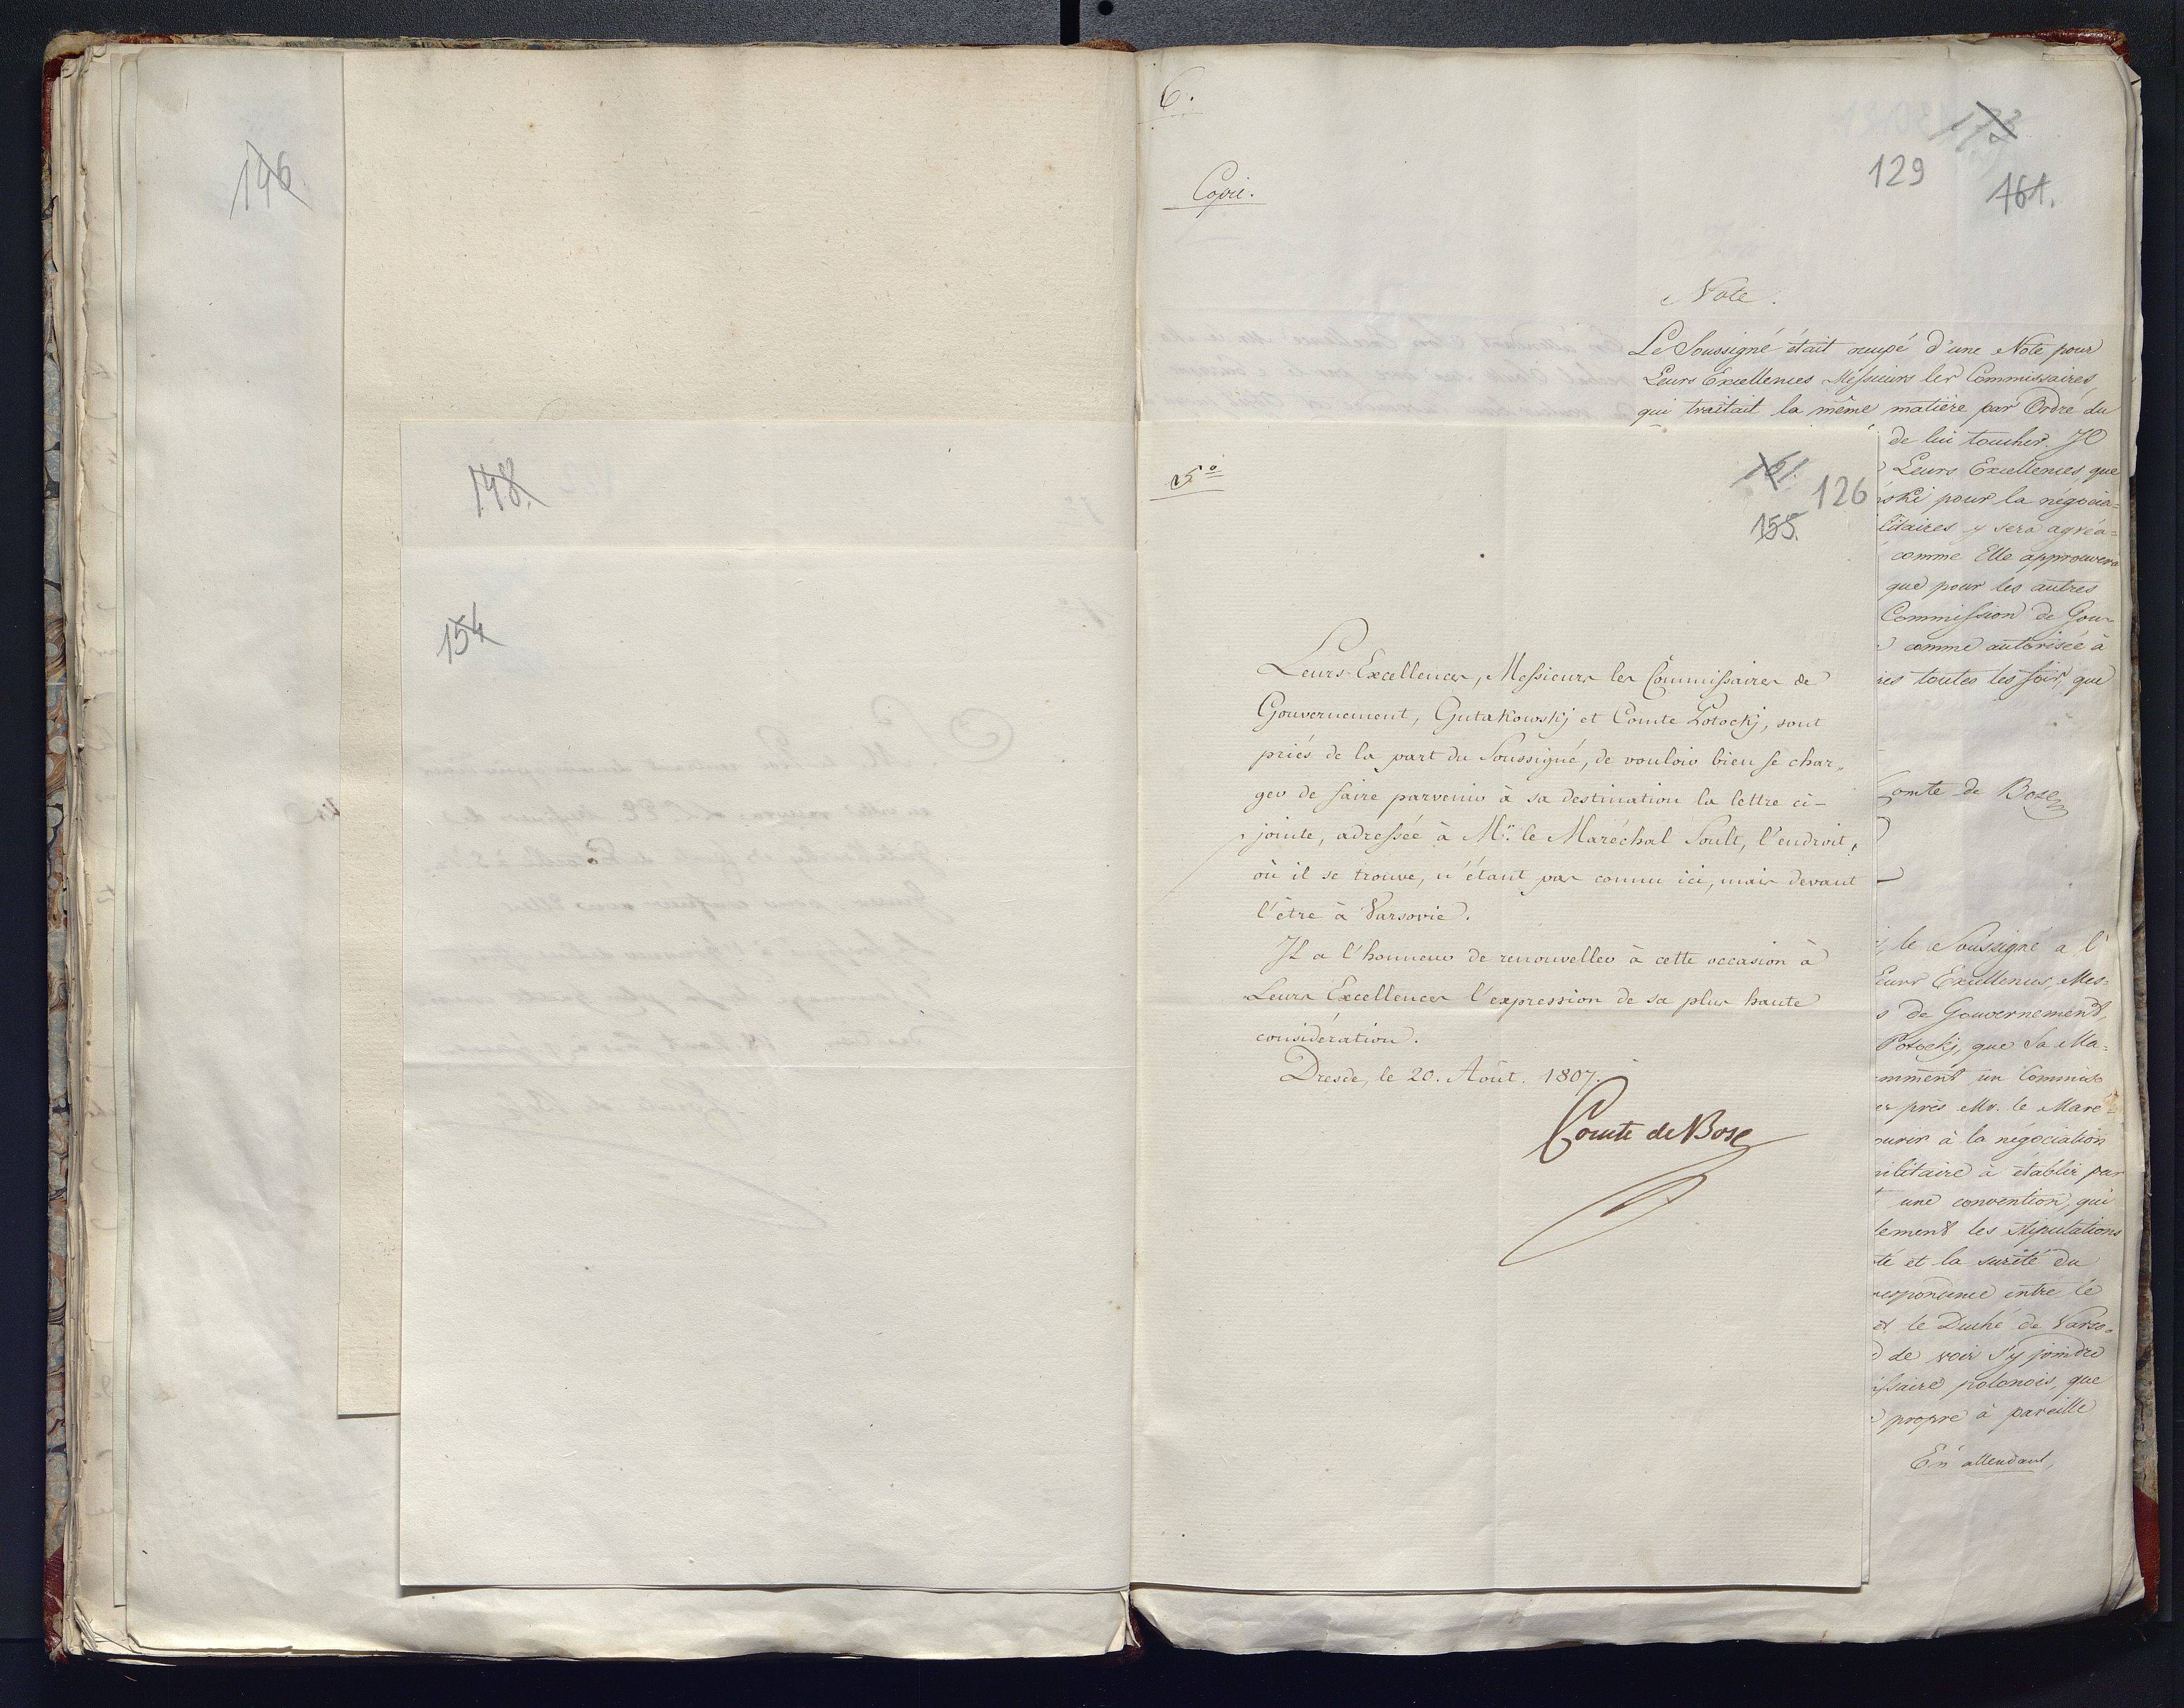 146
148.
154
6.
Copie.
129
161.
Note.
Le Soussigné était occupé d'une Note pour
Leurs Excellences Messieurs les Commissaires,
qui traitait la même matière par Ordre du
de lui toucher. Il
Leurs Excellences, que
ski pour la négocia=
litaires y sera agréa=
comme Elle approuvera
que pour les autres
Commission de Gou-
comme autorisée à
res toutes les fois, que
Comte de Bose
le Soussigné a l'
Leurs Excellences, Mes=
s de Gouvernement,
Potockj, que Sa Ma=
emment un Commis
er près Mr. le Maré
ourir à la négociation
militaire à établir par
une convention, qui
lement les stipulations
té et la sureté du
respondence entre le
et le Duché de Varso=
de voir s'y joindre
issaire polonois, que
propre à pareille
En attendant,
5º
151.
126
155.
Leurs Excellences, Messieurs les Commissaires de
Gouvernement, Gutakowskj et Comte Potockj, sont
priés de la part du Soussigné, de vouloir bien se char„
ger de faire parvenir à sa destination la lettre ci-
jointe, adressée à Mr. le Maréchal Soult, l'endroit,
où il se trouve, n'étant pas connu ici, mais devant
l'être à Varsovie.
Il a l'honneur de renouveller à cette occasion à
Leurs Excellences l'expression de sa plus haute
considération.
Dresde, le 20. Août. 1807.
Comte de Bose